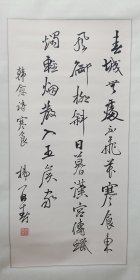 春城無處不飛花寒食東
風御柳斜日暮漢宮傳蠟
燭輕烟散入五侯家
韓翃詩寒食
楊